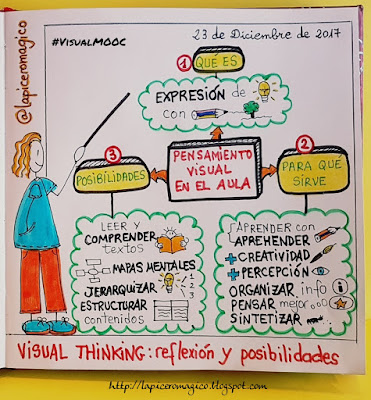 #VISUALMOOC
23 de Diciembre de 2017
@lapiceromagico
1
QUÉ ES
EXPRESIÓN de
con
3
POSIBILIDADES
PENSAMIENTO
VISUAL
EN EL AULA
2
PARA QUÉ
SIRVE
LEER y
COMPRENDER
textos
MAPAS MENTALES
JERARQUIZAR 1
2
3
ESTRUCTURAR
contenidos
APRENDER con
APREHENDER
+ CREATIVIDAD
+ PERCEPCIÓN
ORGANIZAR info i
PENSAR mejor
SINTETIZAR
VISUAL THINKING: reflexión y posibilidades
http://lapiceromagico.blogspot.com